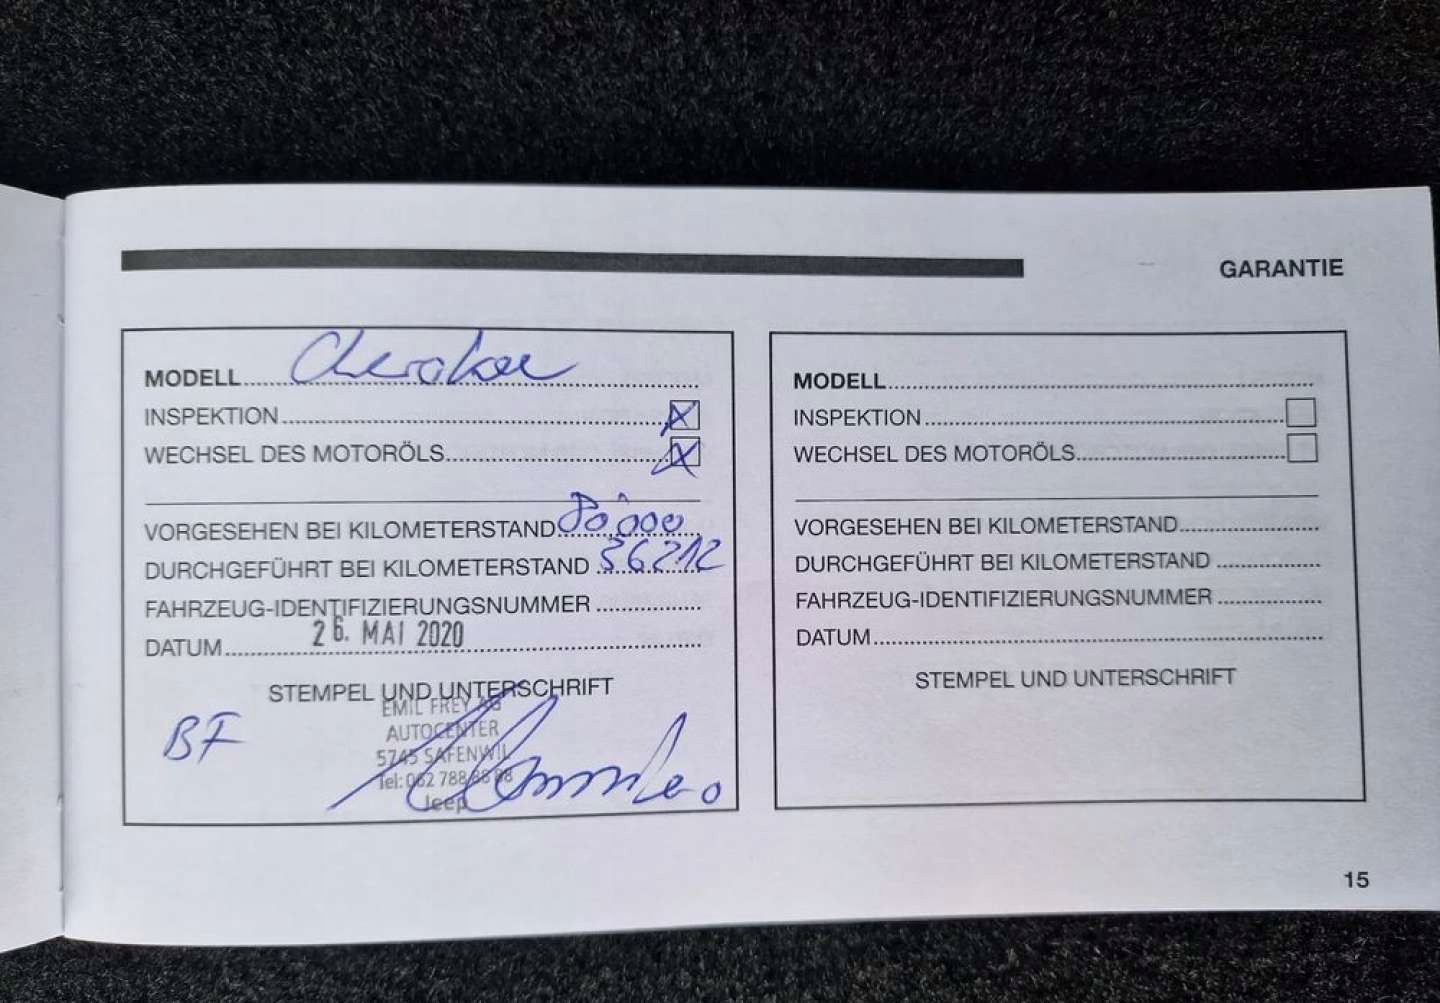 GARANTIE
MODELL Cherokee
INSPEKTION X
WECHSEL DES MOTORÖLS X
VORGESEHEN BEI KILOMETERSTAND 80'000
DURCHGEFÜHRT BEI KILOMETERSTAND 36212
FAHRZEUG-IDENTIFIZIERUNGSNUMMER
DATUM 26. MAI 2020
STEMPEL UND UNTERSCHRIFT
EMIL FREY AG
AUTOCENTER
5745 SAFENWIL
Tel: 062 788 88 88
Jeep
BF
MODELL
INSPEKTION
WECHSEL DES MOTORÖLS
VORGESEHEN BEI KILOMETERSTAND
DURCHGEFÜHRT BEI KILOMETERSTAND
FAHRZEUG-IDENTIFIZIERUNGSNUMMER
DATUM
STEMPEL UND UNTERSCHRIFT
15